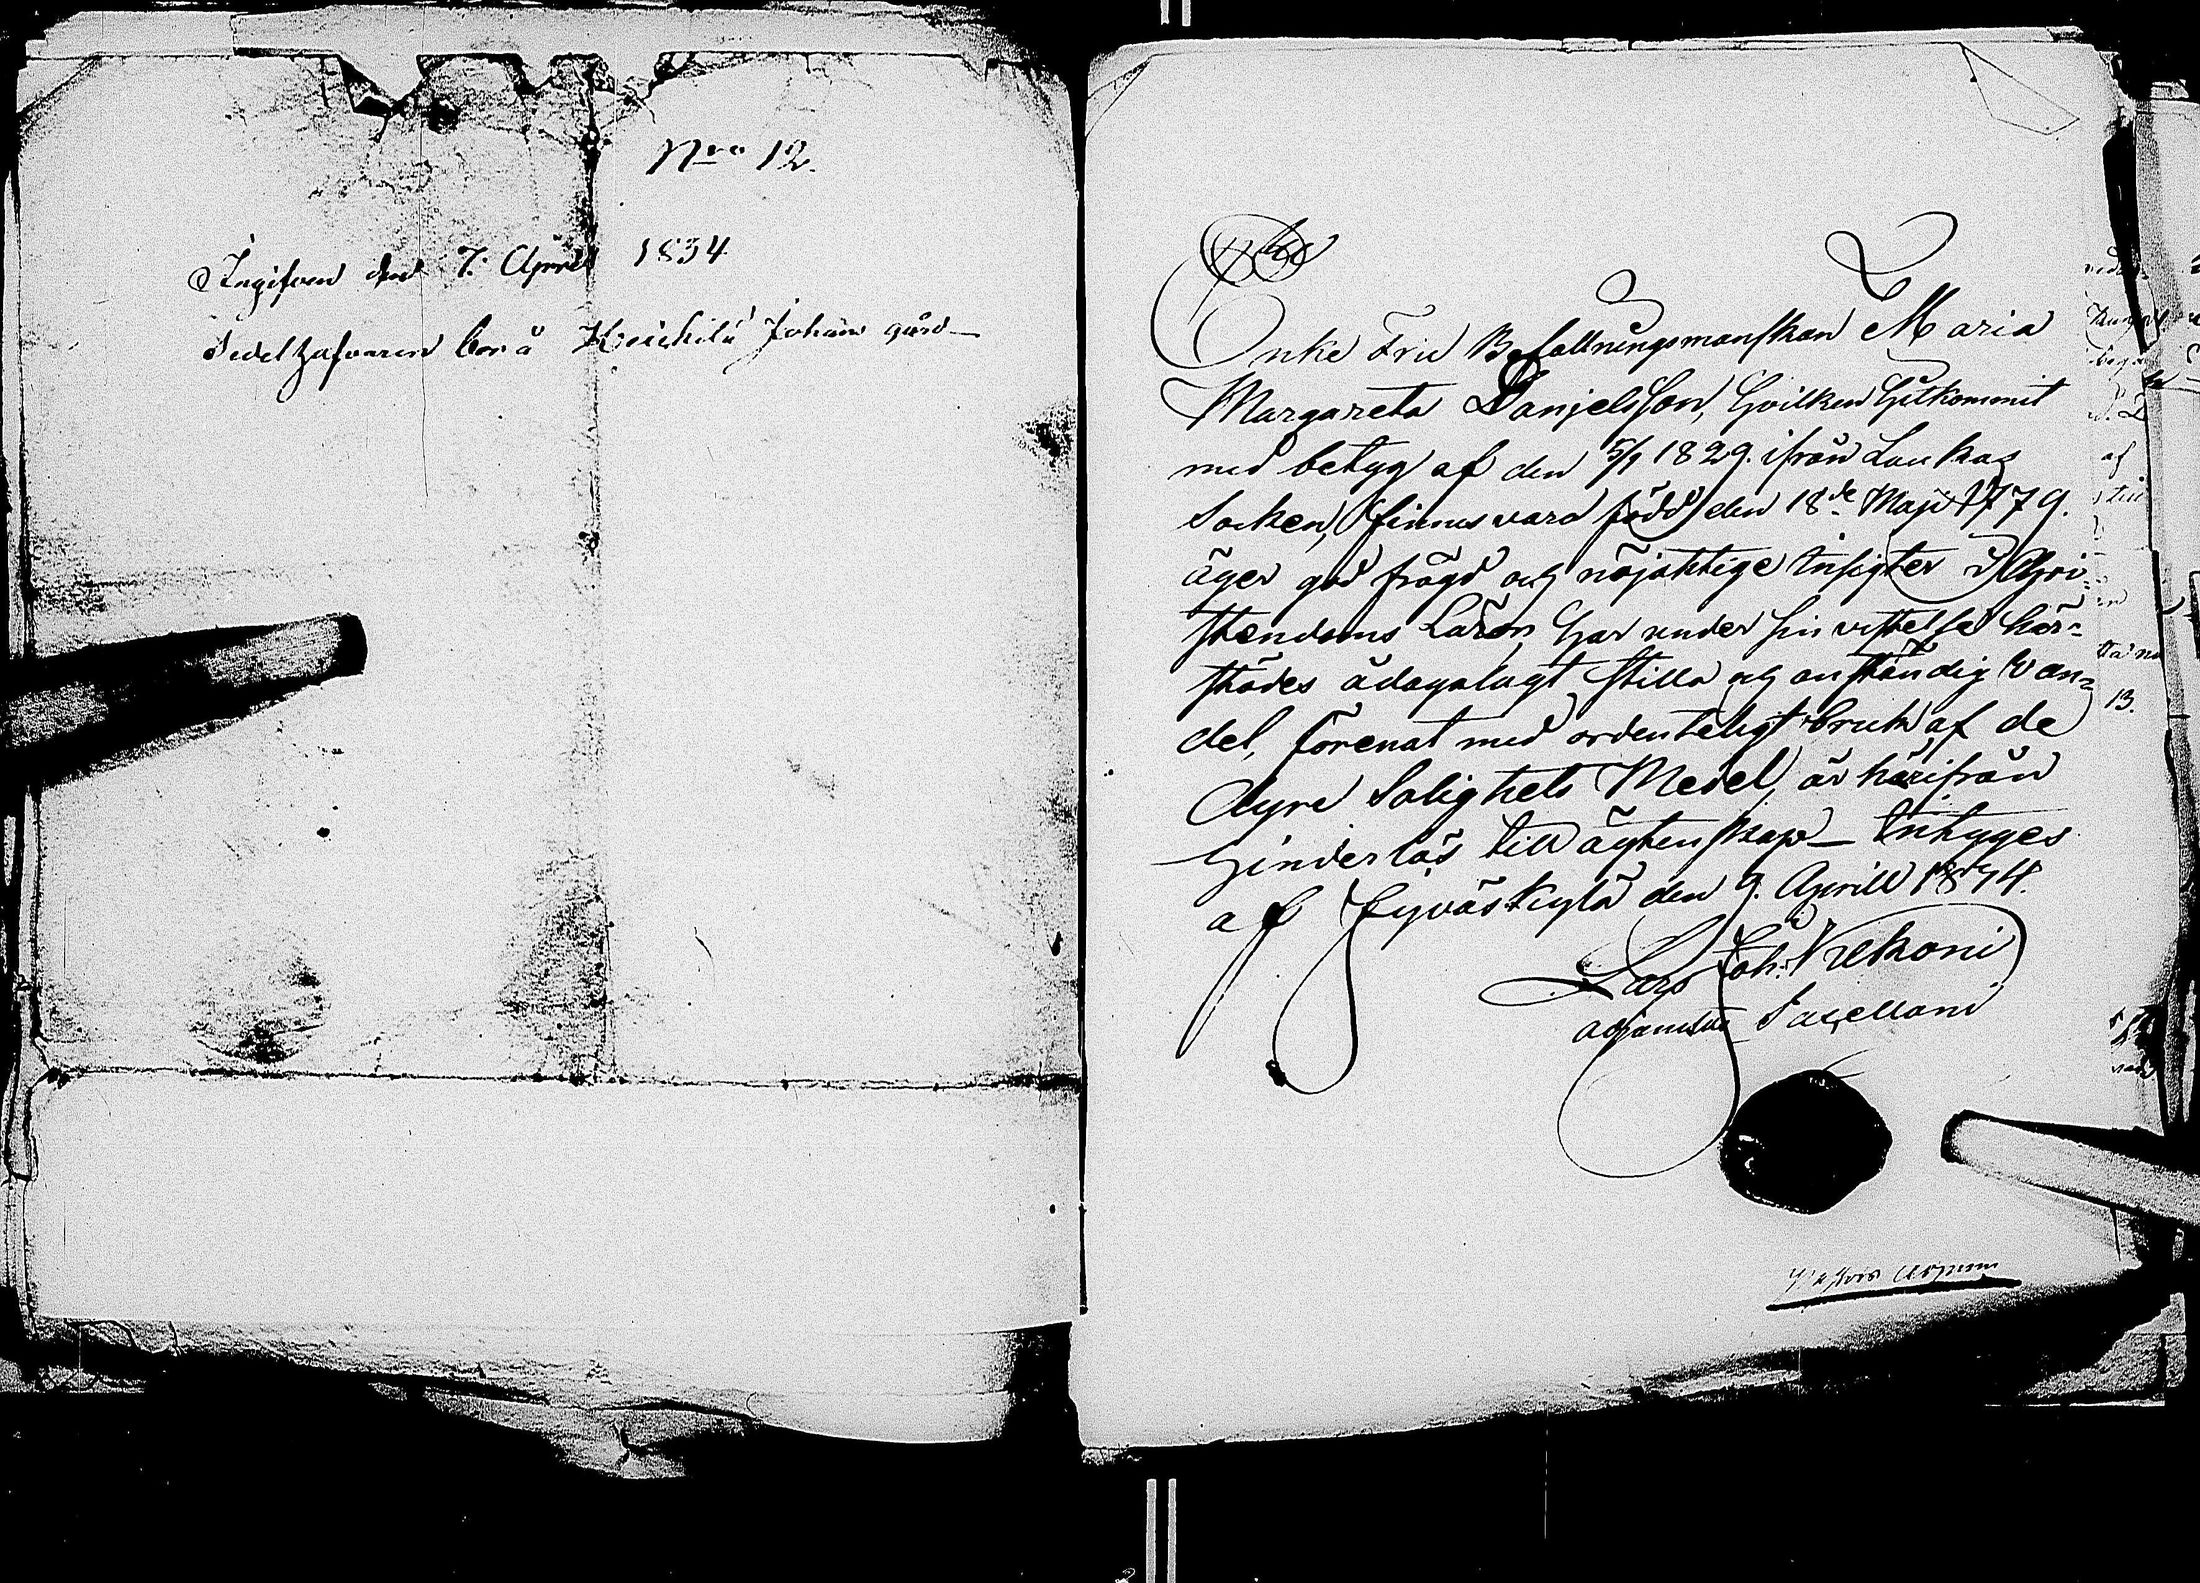 Nro 12.
Ingifven den 7. April 1834
Sedelhafvaren bor å Heickilä Johans gård
Enke Fru Befallningsmanskan Maria
Margareta Danjelsson, hvilken hitkommit
med betyg af den 5/9 1829. ifrån Laukas
Socken, finnes vara född den 18de Maji 1779.
äger god frägd och nöjaktige Insigter i Chri-
stendoms Läran, har under sin vistelse här-
städes ådagalagt stilla och anständig van-
del, förenat med ordenteligt bruk af de
dyre Salighets Medel, är härifrån
hinderlös till ägtenskap_ Intygas
af Jyväskylä den 9. Aprill 1834.
Lars Joh.
Sacellani
13.
af